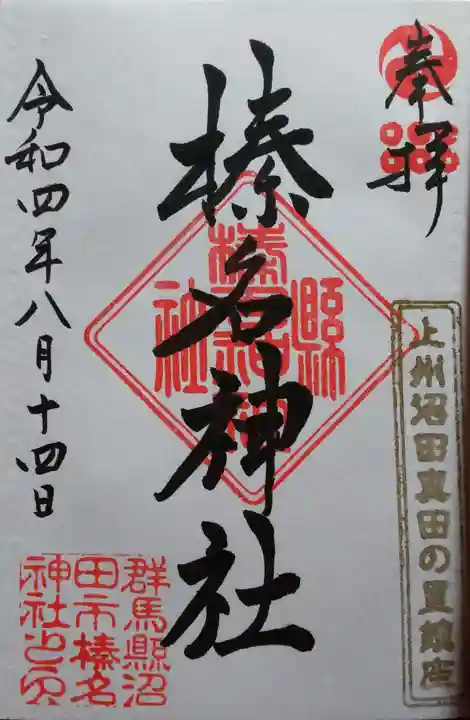 奉拝
上州沼田真田の里鎮座
榛名神社
令和四年八月十四日
群馬縣沼
田市榛名
神社之印